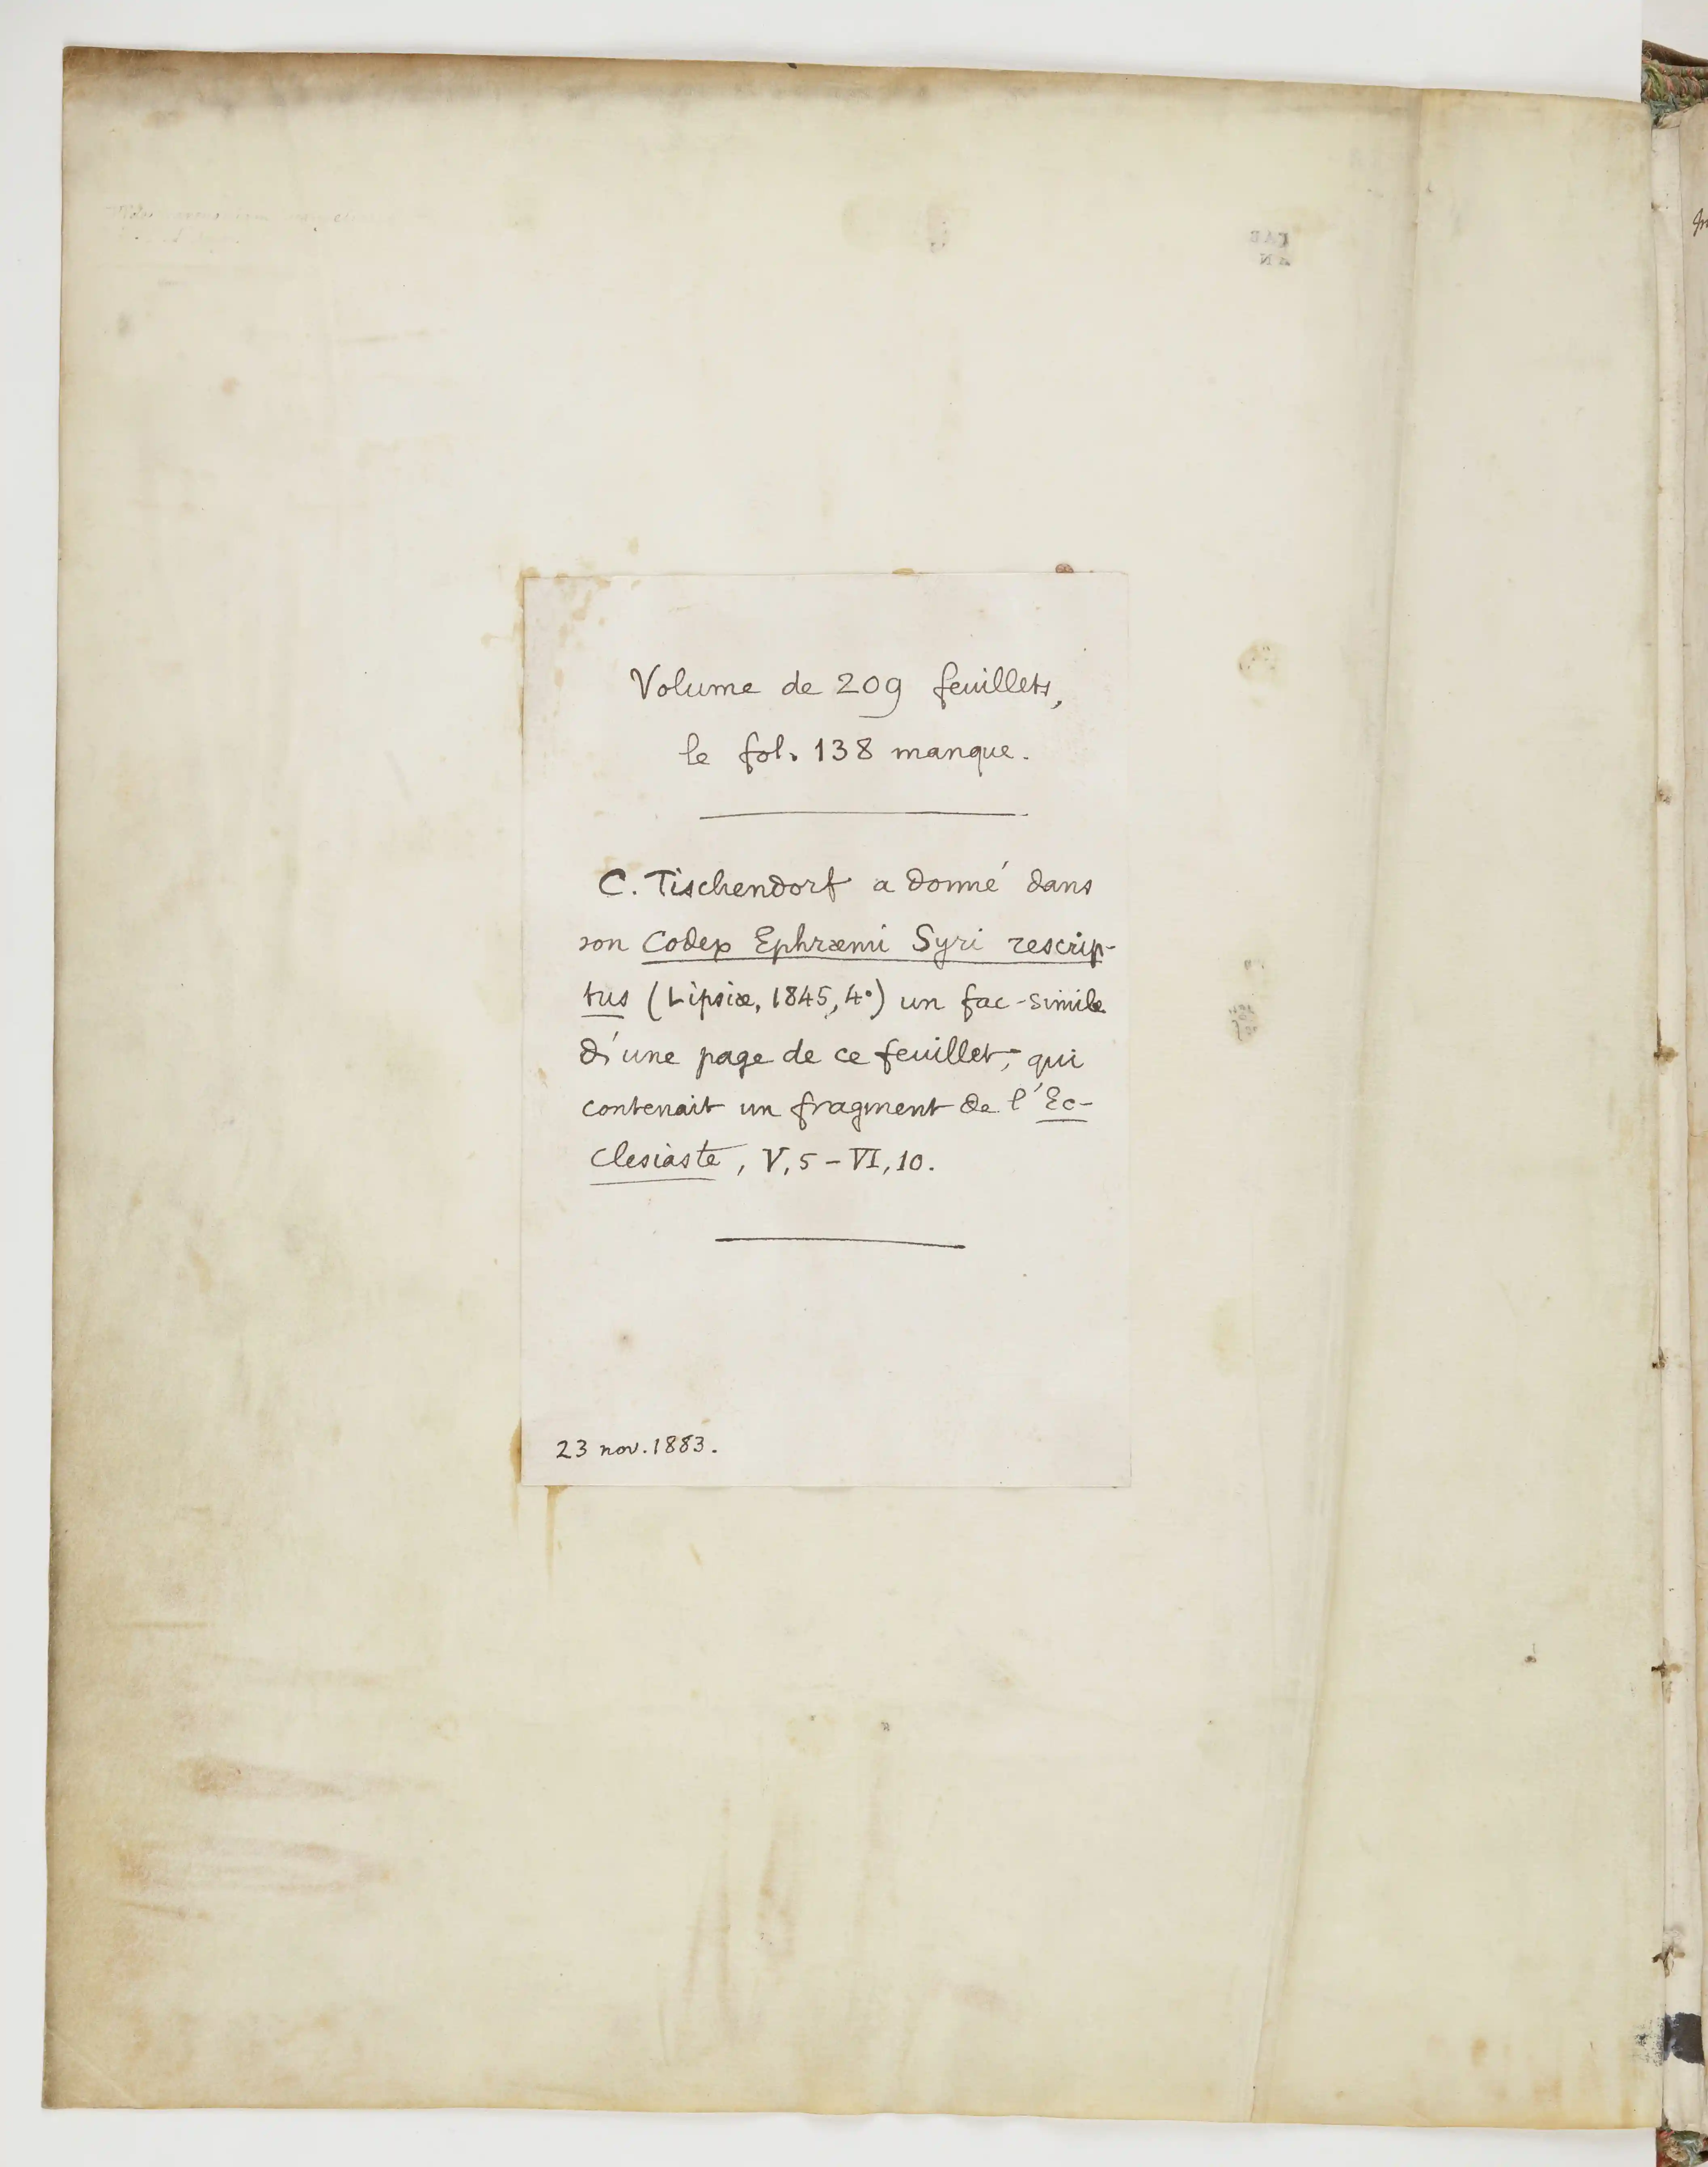 Volume de 209 feuillets,
le fol. 138 manque.
C. Tischendorf a donné dans
son Codex Ephræmi Syri rescrip-
tus (Lipsiæ, 1845, 4°) un fac-simile
d'une page de ce feuillet, qui
contenait un fragment de l'Ec-
clesiaste, V, 5 - VI, 10.
23 nov. 1883.